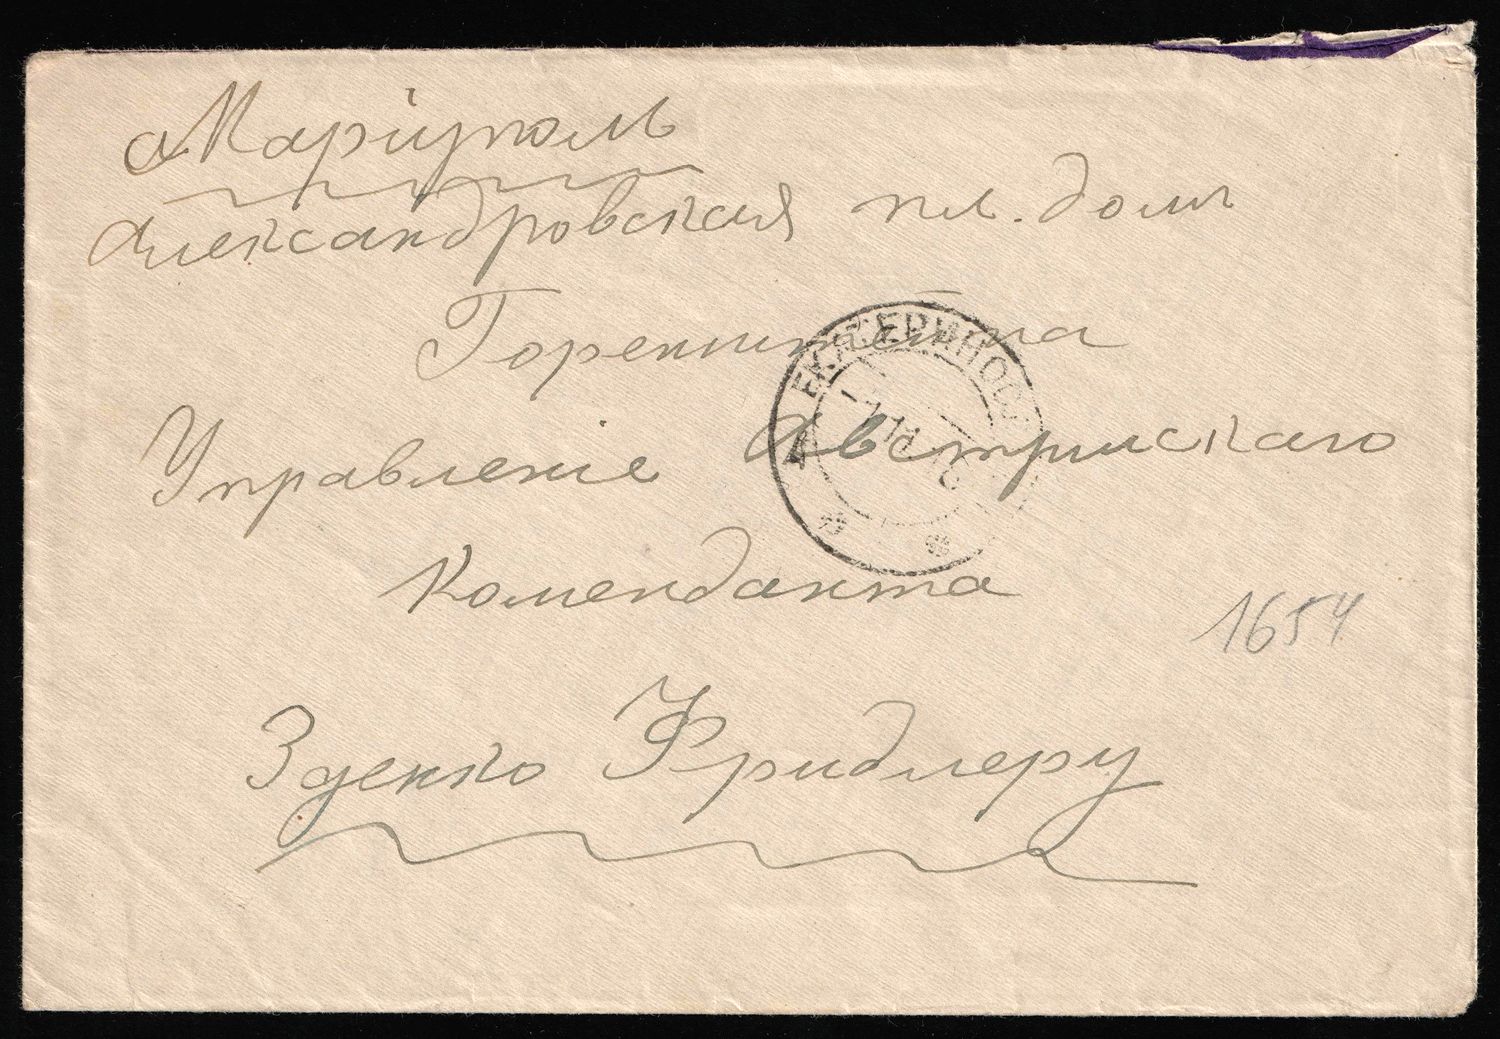 Маріуполь
Александровская пл. домъ
Горенштейна
Управленіе Австрійскаго
Коменданта
1654
Зденко Фридлеру
ЕКАТЕРИНОСЛ